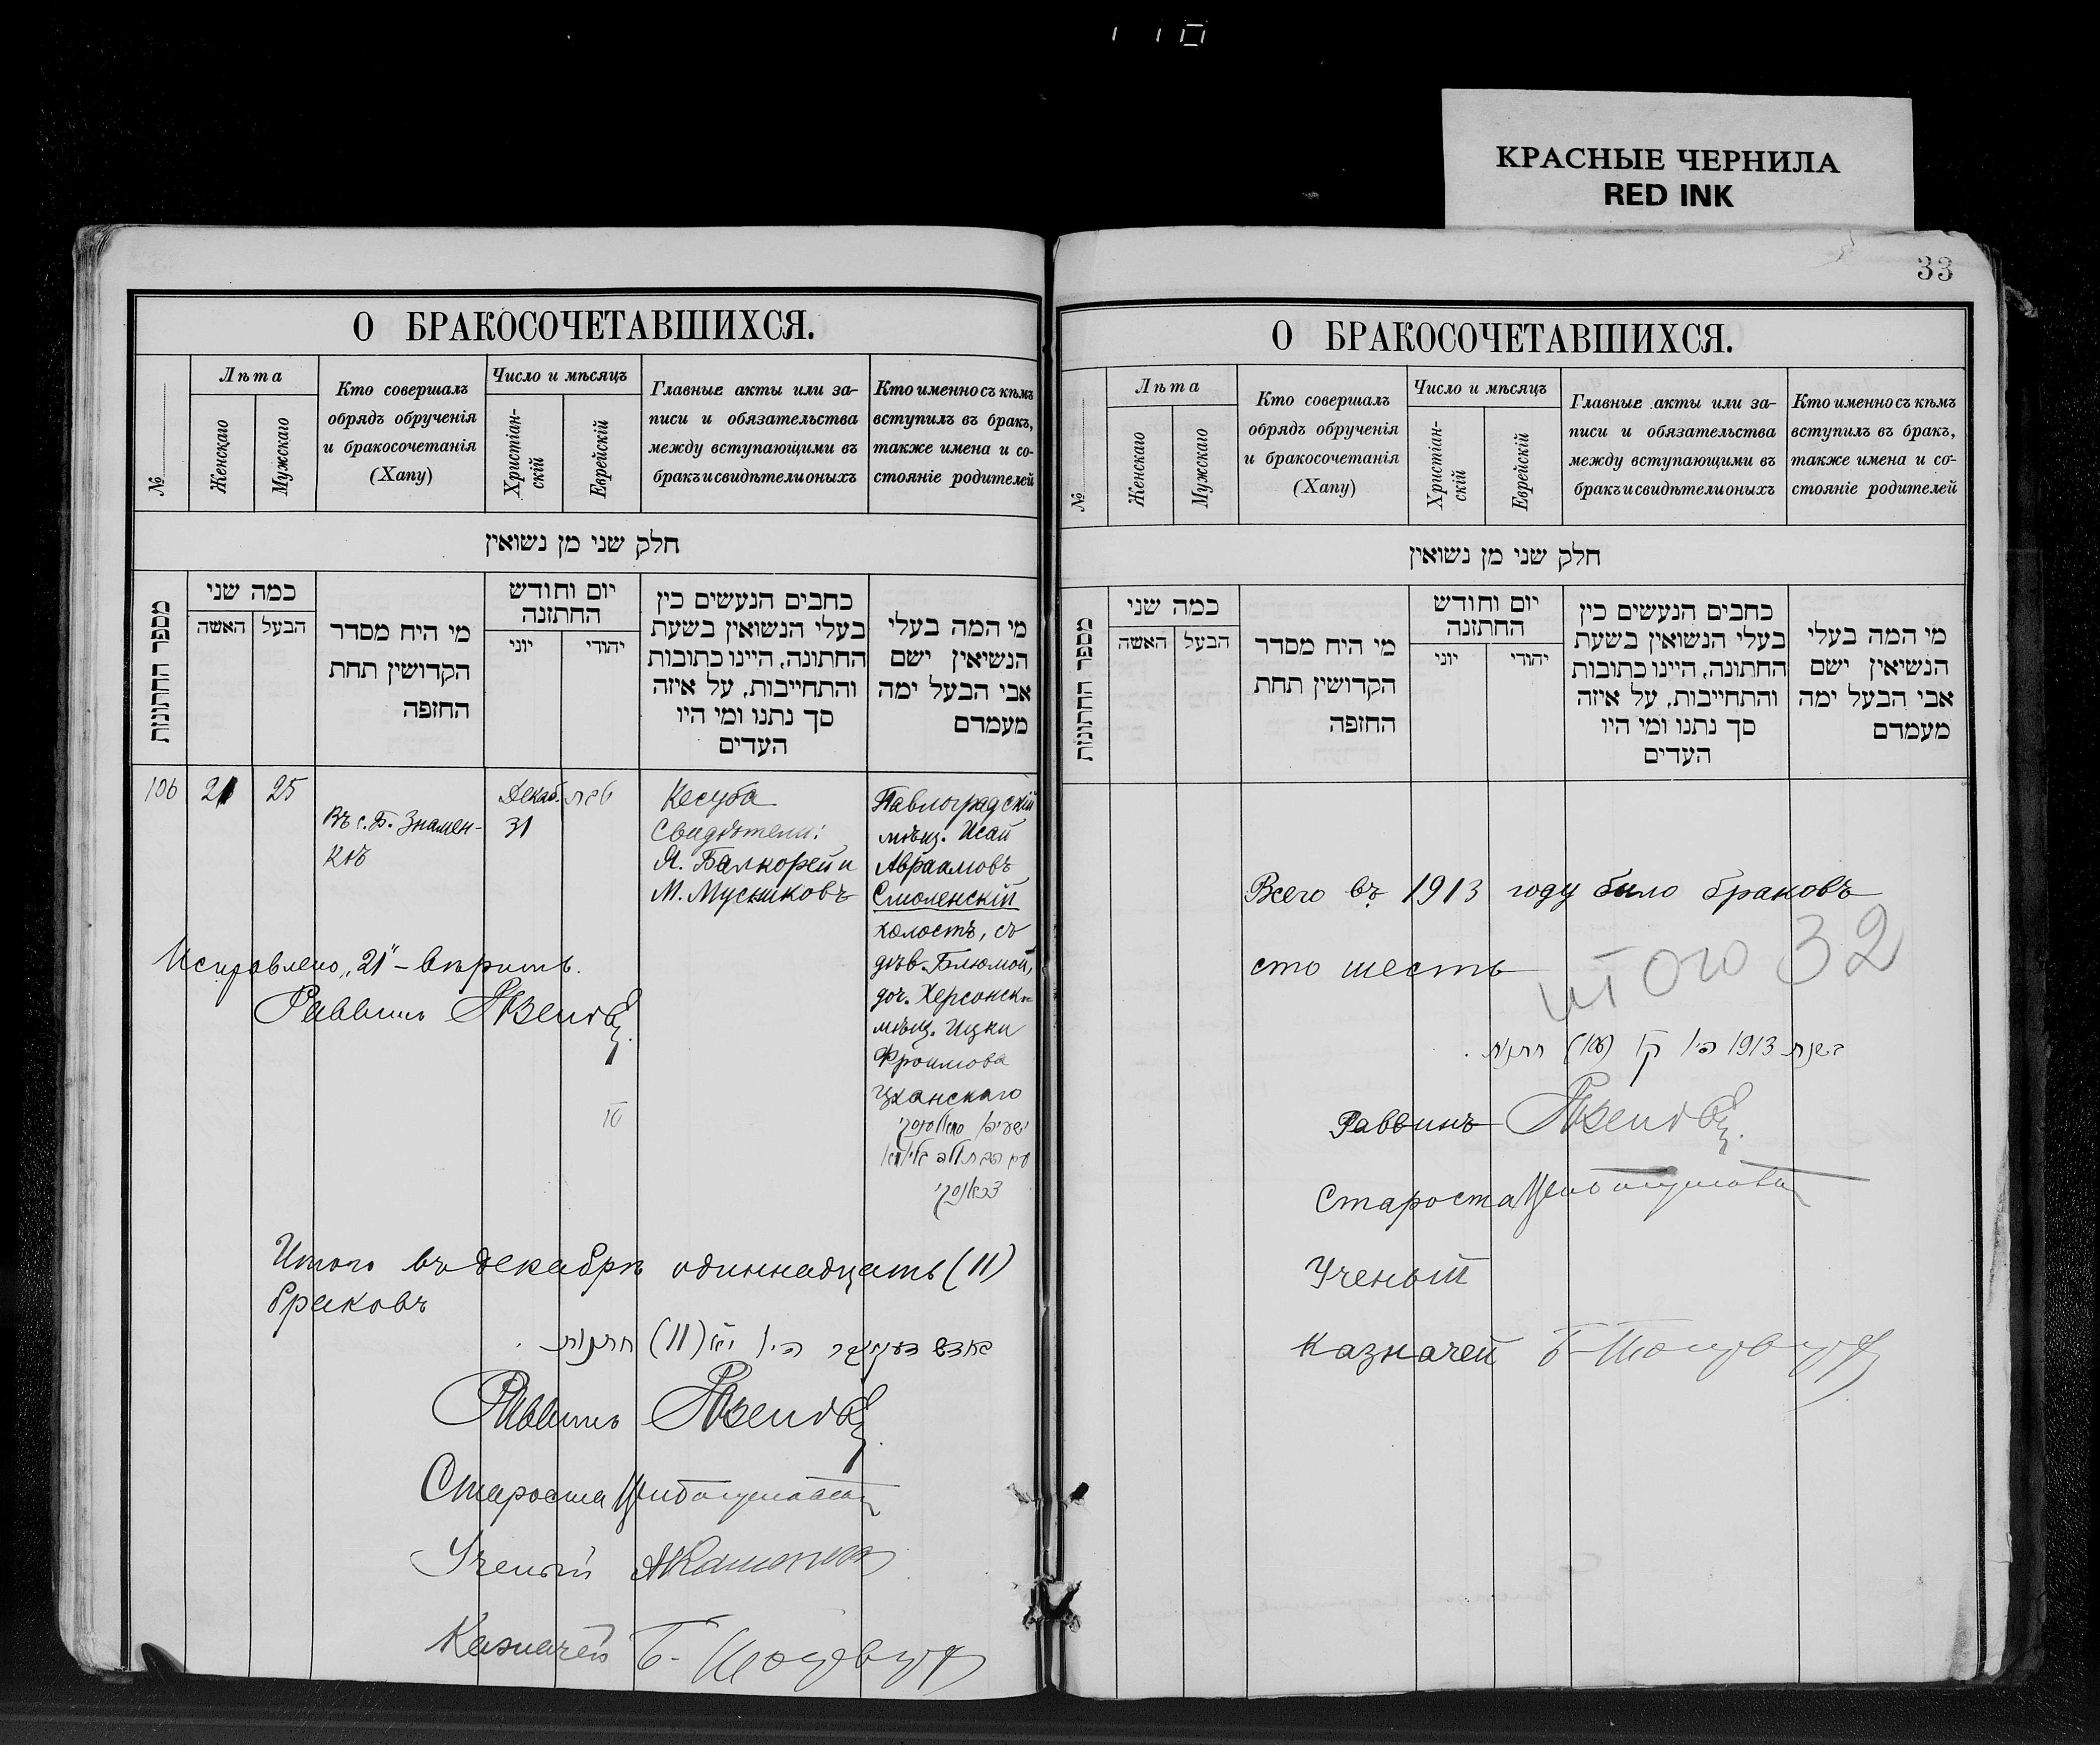 КРАСНЫЕ ЧЕРНИЛА
RED INK
О БРАКОСОЧЕТАВШИХСЯ.
№
Лѣта
Женскаго
Мужскаго
Кто совершалъ
обрядъ обрученія
и бракосочетанія
(Хапу)
Число и мѣсяцъ
Христіан-
скій
Еврейскій
Главныe акты или за-
писи и обязательства
между вступающими въ
бракъ и свидѣтели оныхъ
Кто именно съ кѣмъ
вступилъ въ бракъ,
также имена и со-
стояніе родителей
חלק שני מן נשואין
מספר החתונות
כמה שני
האשה
הבעל
מי היח מסדר
הקדושין תחת
החזפה
יום וחודש
החתזנה
יוני
יהודי
כחבים הנעשים כין
בעלי הנשואין בשעת
החתונה, היינו כתובות
והתחייבות, על איזה
סך נתנו ומי היו
העדים
מי המה בעלי
הנשיאין ישם
אבי הבעל ימה
מעמדם
106
21
25
Въ с. Б. Знамен-
кѣ
Декаб.
31
טבת
Кесуба
Свидѣтели:
Я. Балкорей и
М. Мусниковъ
Павлоградскій
мѣщ. Исай
Авраамовъ
Смоленскій
холостъ, съ
дѣв. Блюмой,
доч. Херсонск
мѣщ. Ицки
Фроимова
Цханскаго
Исправлено „21" – вѣрить.
Раввинъ
Итого въ декабрѣ одиннадцать (11)
браковъ
(11) חתונות
Раввинъ
Староста
Ученый
Казначей
33
О БРАКОСОЧЕТАВШИХСЯ.
№
Лѣта
Женскаго
Мужскаго
Кто совершалъ
обрядъ обрученія
и бракосочетанія
(Хапу)
Число и мѣсяцъ
Христіан-
скій
Еврейскій
Главныe акты или за-
писи и обязательства
между вступающими въ
бракъ и свидѣтели оныхъ
Кто именно съ кѣмъ
вступилъ въ бракъ,
также имена и со-
стояніе родителей
חלק שני מן נשואין
מספר החתונות
כמה שני
האשה
הבעל
מי היח מסדר
הקדושין תחת
החזפה
יום וחודש
החתזנה
יוני
יהודי
כחבים הנעשים כין
בעלי הנשואין בשעת
החתונה, היינו כתובות
והתחייבות, על איזה
סך נתנו ומי היו
העדים
מי המה בעלי
הנשיאין ישם
אבי הבעל ימה
מעמדם
Всего въ 1913 году било браковъ
сто шесть
итого 32
בשנת 1913 היו קו (106) חתונות.
Раввинъ
Староста
Ученый
Казначей